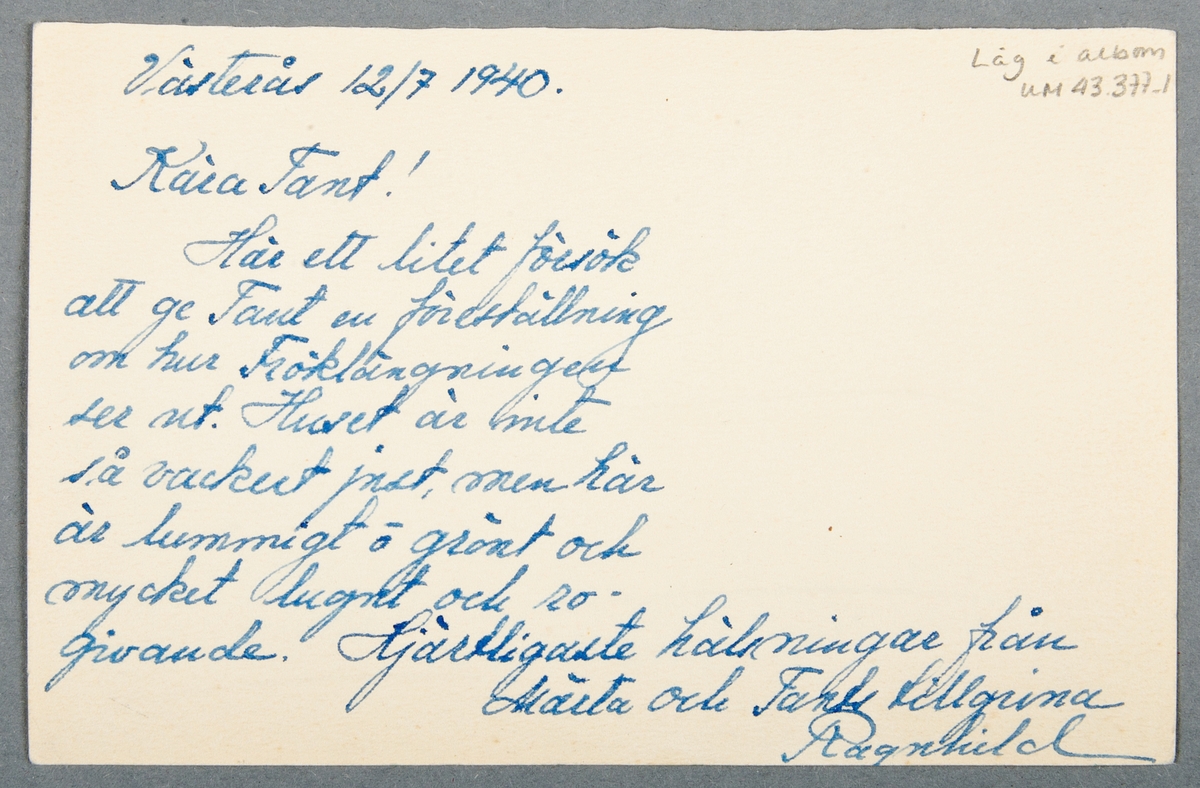 Låg i album
UM 43.377-1
Västerås 12/7 1940.
Kära Tant!
Här ett litet försök
att ge Tant en föreställning
om hur Fröklängningen
ser ut. Huset är inte
så vackert just, men här
är lummigt o grönt och
mycket lugnt och ro-
givande. Hjärtligaste hälsningar från
Märta och Tants tillgivna
Ragnhild